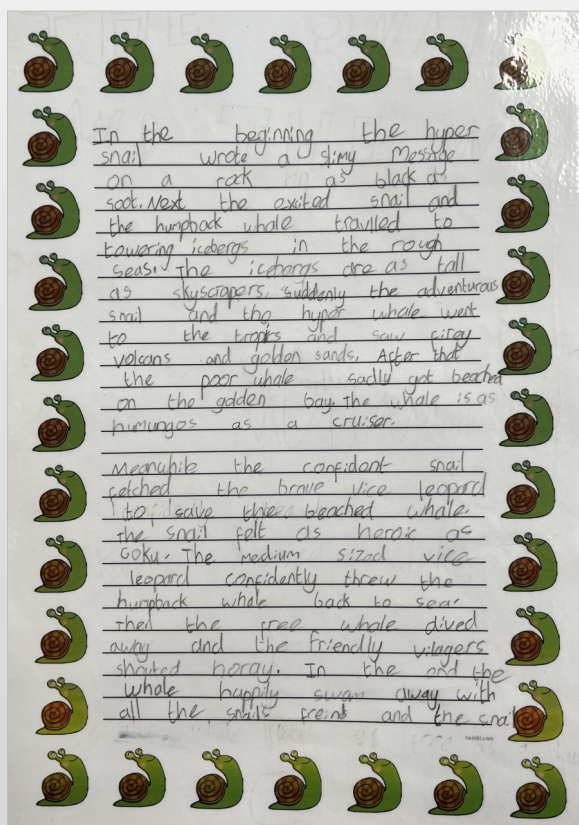 In the beginning the hyper
snail wrote a slimy Message
on a rock as black as
soot. Next the exited snail and
the humpback whale travlled to
towering icebergs in the rough
seas. The icebergs are as tall
as skyscrapers. Suddenly the adventurous
snail and the hyper whale went
to the tropics and saw firey
volcans and golden sands. After that
the poor whale sadly got beached
on the golden bay. The whale is as
humungos as a cruiser.
Meanwhile the confident snail
fetched the brave vice leopard
to save the beached whale.
The snail felt as heroic as
Goku. The medium sized vice
leopard confidently threw the
humpback whale back to sea.
Then the free whale dived
away and the friendly vilagers
shouted horay. In the end the
whale happily swam away with
all the snails freind and the snail
twinkl.com